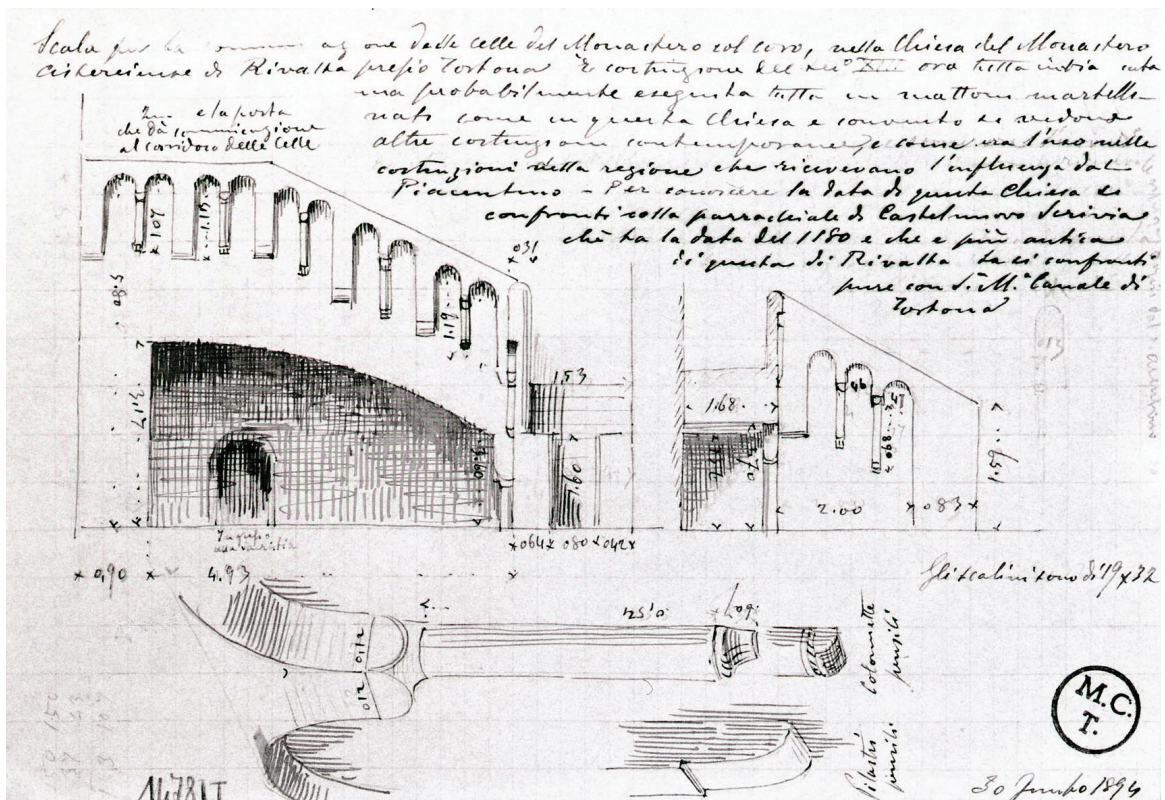 Scala per la comun one delle celle del Monastero col coro, nella Chiesa del Monastero
cisterciense di Rivalta presso Tortona È costruzione del XIII ora tutta
ma probabilmente eseguita tutta in mattoni martelli-
nati come in questa Chiesa e convento si vedono
altre costruzioni contemporanee, e come era l'uso nelle
costruzioni della regione che ricevevano l'influenza dal
Piacentino - Per conoscere la data di questa Chiesa si
confronti colla parrocchiale di Castelnuovo Scrivia
che ha la data del 1180 e che è più antica
di questa di Rivalta La si confronti
pure con S. M. Canale di
Tortona
e la porta
che dà comunicazione
al corridoio delle Celle
1.07
1.15
5.80
031
1.19
3.17
1.53
1.68
46
1.60
2.00
083
1.59
Ingresso
alla sacristia
064 080 042
0,90
4.93
Gli scalini sono di 19 x 32
0,54
012
012
Colonnette
pensili
Pilastri
pensili
M.C.
T.
30 1894